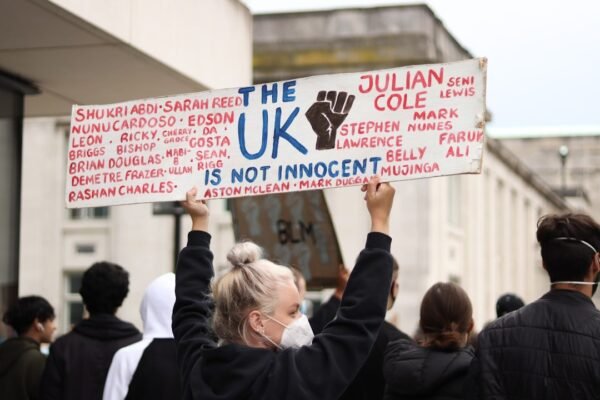 SHUKRI ABDI • SARAH REED
NUNU CARDOSO • EDSON
LEON RICKY • CHERRY • DA
BRIGGS BISHOP • GROCE COSTA
BRIAN DOUGLAS • HABI- SEAN
DEMETRE FRAZER • B ULLAH RIGG
RASHAN CHARLES •
THE
UK
IS NOT INNOCENT
ASTON MCLEAN • MARK DUGGAN
JULIAN SENI
COLE LEWIS
MARK
STEPHEN NUNES
LAWRENCE FARUK
BELLY ALI
MUJINGA
BLM